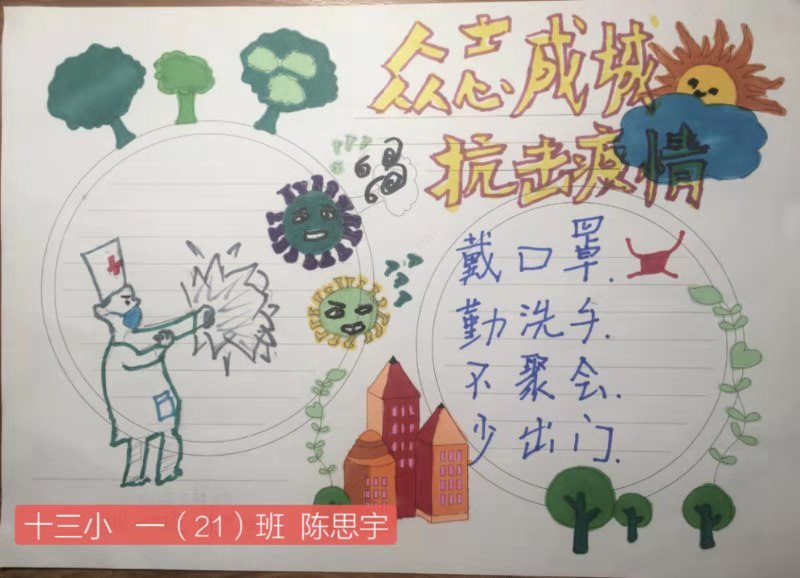 众志成城
抗击疫情
戴口罩.
勤洗手.
不聚会.
少出门.
十三小 一（21）班 陈思宇